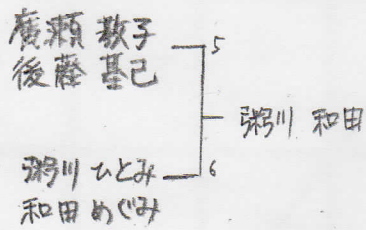 廣瀬 敦子
後藤 基己
5
粥川 和田
粥川 ひとみ
6
和田 めぐみ